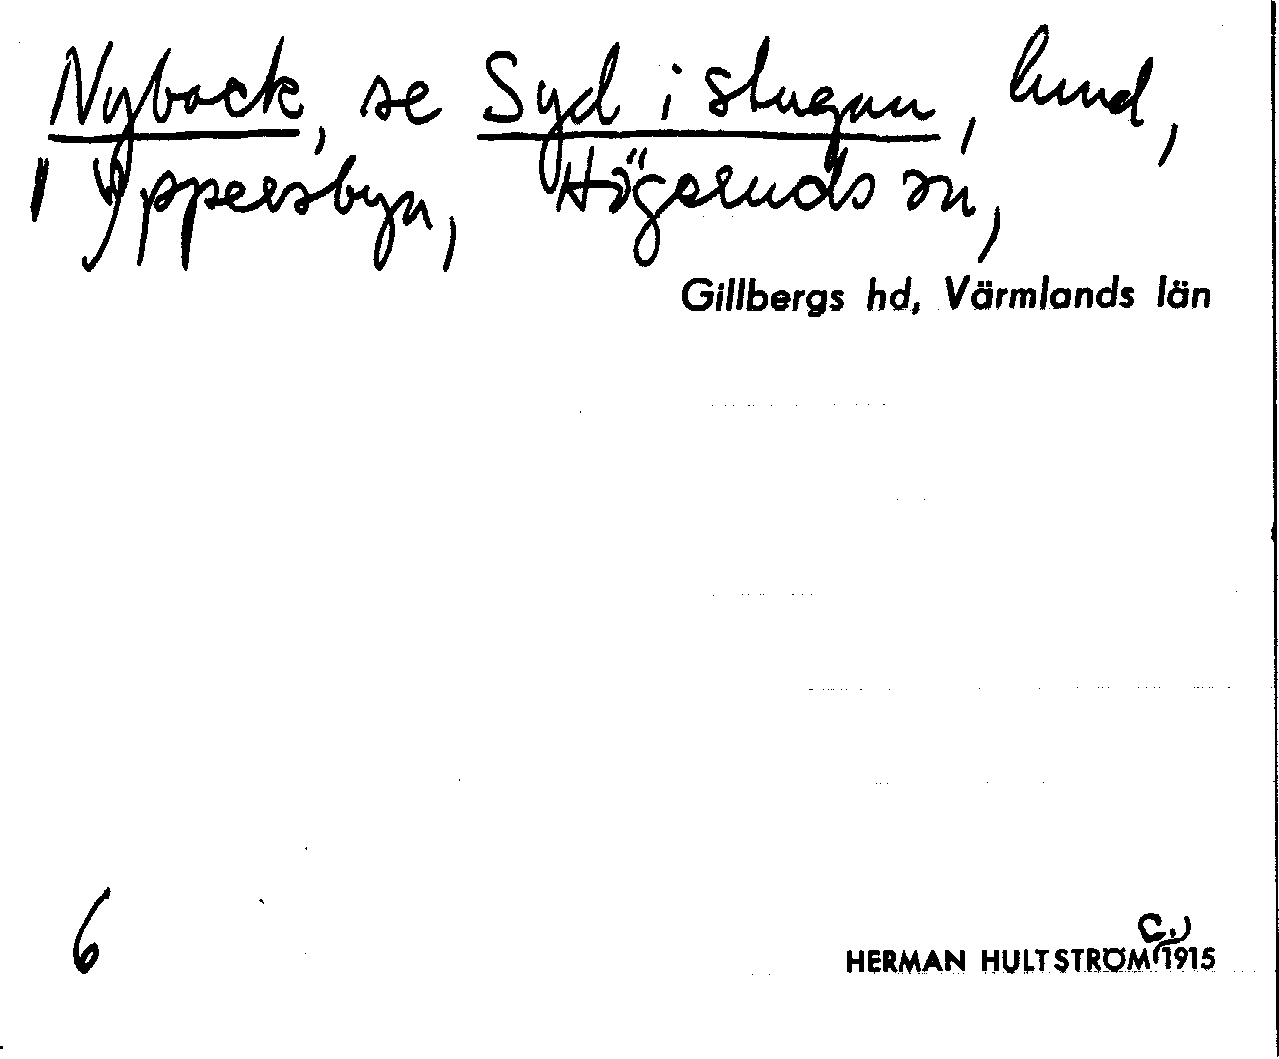 Nyback, se Syd i stugan, lund,
i Yppersbyn, Högeruds sn,
Gillbergs hd, Värmlands län
6
HERMAN HULTSTRÖM (c.) 1915